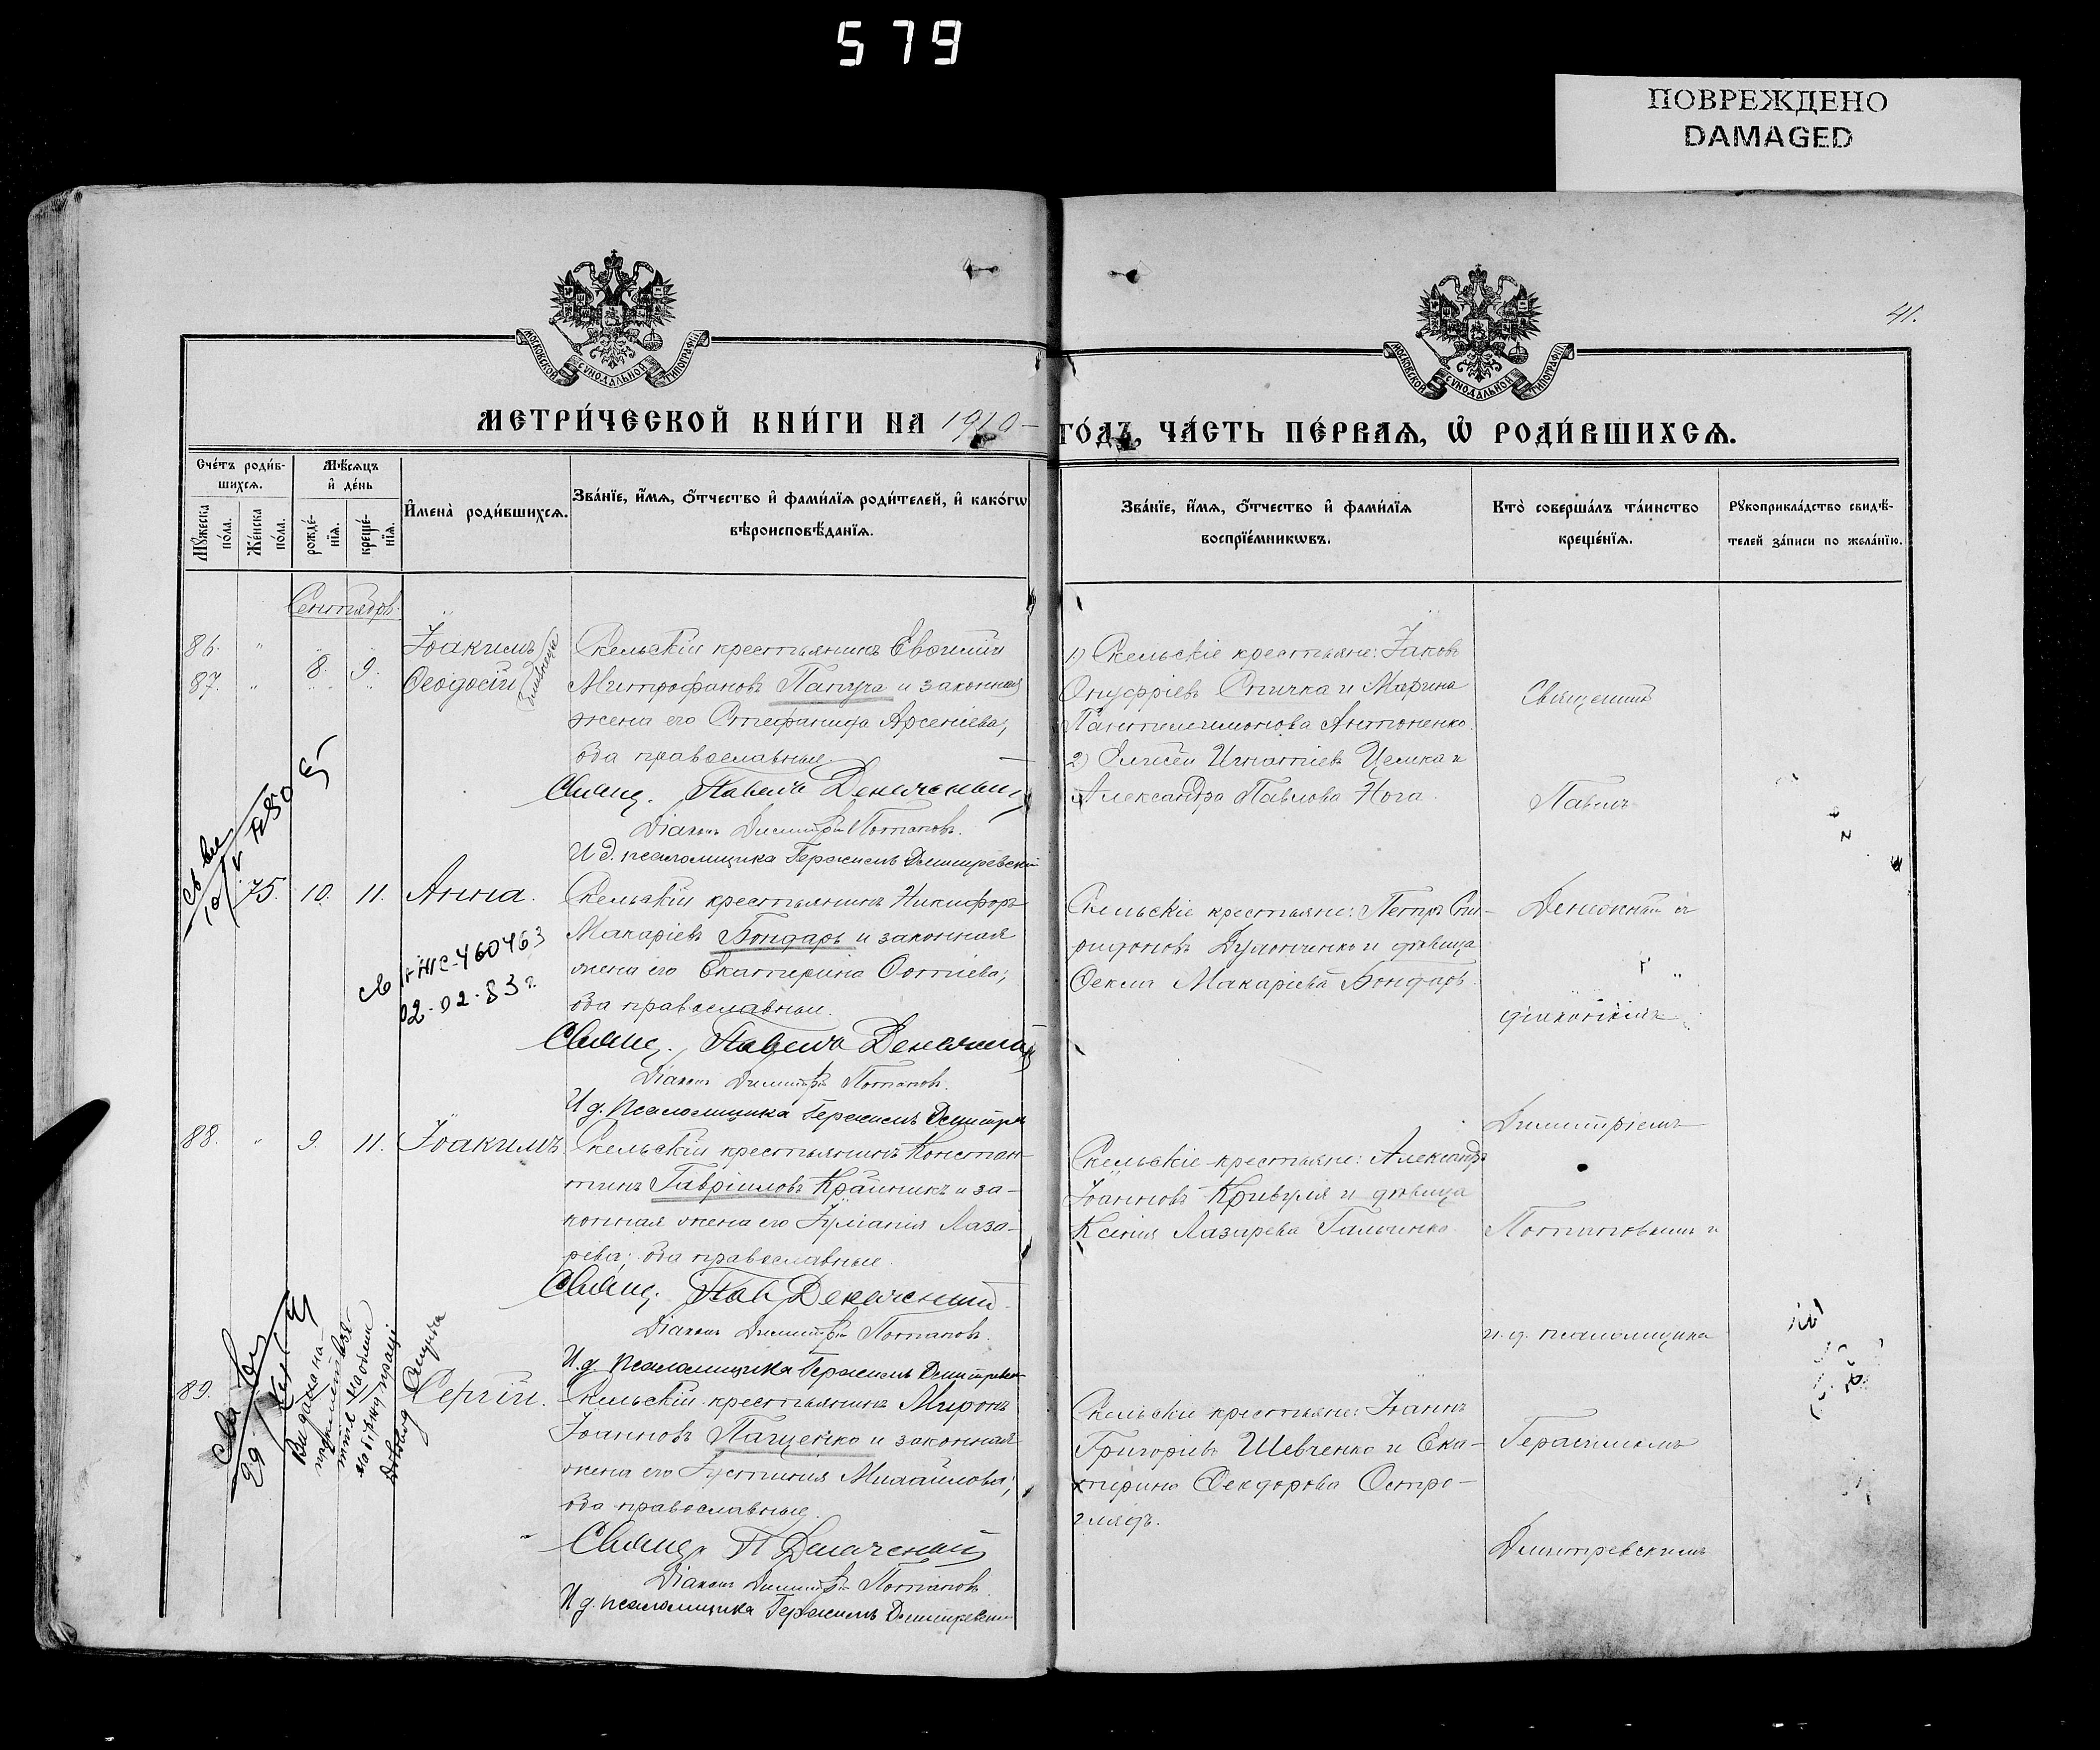 579
ПОВРЕЖДЕНО
DAMAGED
МОСКОВСКОЙ СѴНОДАЛЬНОЙ ТИПОГРАФІИ
МОСКОВСКОЙ СѴНОДАЛЬНОЙ ТИПОГРАФІИ
41.
МЕТРИ́ЧЕСКОЙ КНИ́ГИ НА 1910
ГО́ДЪ, ЧА́СТЬ ПЕ́РВАѦ, Ѡ҆ РОДИ́ВШИХСѦ.
Сче́тъ роди́в-
шихсѧ.
Мꙋ́жеска по́ла.
Же́нска по́ла.
Мѣ́сѧцъ
и҆ де́нь
рожде́-
нїѧ.
креще́-
нїѧ.
И҆мена̀ роди́вшихсѧ.
Зва́нїе, и҆́мѧ, ѻ҆́тчество и҆ фами́лїѧ роди́телей, и҆ како́гѡ
вѣроисповѣ́данїѧ.
Зва́нїе, и҆́мѧ, ѻ҆́тчество и҆ фами́лїѧ
воспрїе́мникѡвъ.
Кто̀ соверша́лъ та́инство
креще́нїѧ.
Рꙋкоприкла́дство свидѣ́-
телей за́писи по жела́нїю.
Сентябрь.
86. " Іоакимъ
87. " 8. 9. Ѳеодосій
близнецы
Скельскій крестьянинъ Евѳимій
Митрофановъ Папуча и законная
жена его Стефанида Арсеніева;
оба православные.
Свящ. Павелъ
Діаконъ Димитрій Потаповъ.
И д. псаломщика Герасимъ Дмитревскій
1) Скельскіе крестьяне: Іаковъ
Онуфріевъ Спичка и Марина
Пантелеимонова Антоненко.
2) Игнатіевъ Целика и
Александра Павлова Нога.
75. 10. 11. Анна.
Скельскій крестьянинъ Никифоръ
Макаріевъ Бондарь и законная
жена его Екатерина Фотіева;
оба православные.
Свящ. Павелъ
Діаконъ Димитрій Потаповъ.
И д. псаломщика Герасимъ
Скельскіе крестьяне: Петръ Спи-
ридоновъ и дѣвица
Ѳекла Макаріева Бондарь.
460463
02.02.83 г.
88. " 9. 11. Іоакимъ.
Скельскій крестьянинъ Констан-
тинъ Гавріиловъ Крайникъ и за-
конная жена его Іуліанія Лаза-
рева; оба православные.
Свящ. Пав.
Діаконъ Димитрій Потаповъ.
И.д. псаломщика Герасимъ Дмитревскій
Скельскіе крестьяне: Александръ
Іоанновъ Кривуля и дѣвица
Ксенія Лазарева Гальченко.
89. Сергій.
Скельскій крестьянинъ Миронъ
Іоанновъ Пащенко и законная
жена его Іустинія Михайлова;
оба православные.
Свящ. П
Діаконъ Димитрій Потаповъ.
И д. псаломщика Герасимъ Дмитревскій
Скельскіе крестьяне: Іоаннъ
Григоріевъ Шевченко и Ека-
терина Ѳеодорова Остро-
глядъ.
Священникъ
Павелъ
діакономъ
Димитріемъ
Потаповымъ и
и. д. псаломщика
Герасимомъ
Дмитревскимъ